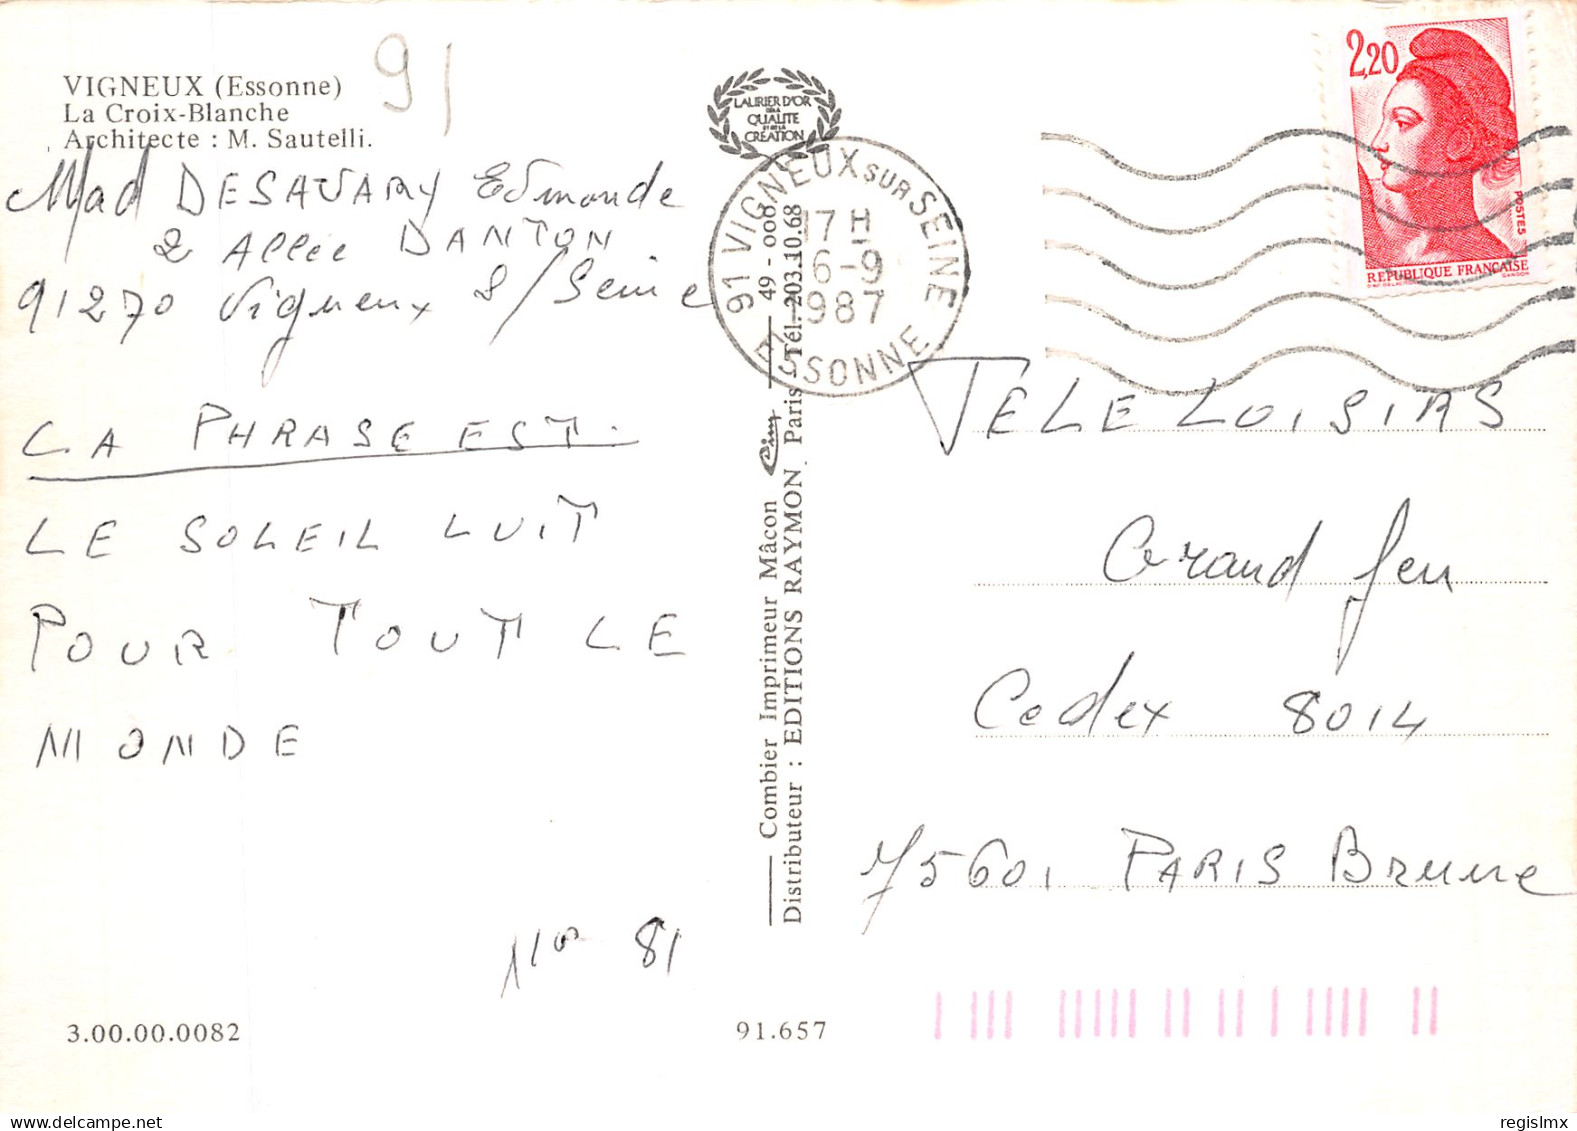 VIGNEUX (Essonne)
La Croix-Blanche
Architecte : M. Sautelli.
91
Mad DESAVARY Edmonde
2 Allée DANTON
91270 Vigneux S/Seine
LA PHRASE EST
LE SOLEIL LUIT
POUR TOUT LE
MONDE
N° 81
3.00.00.0082
91.657
LAURIER D'OR
DE LA
QUALITE
ET DE LA
CREATION
91 VIGNEUX SUR SEINE
17 H
6-9
1987
ESSONNE
Combier Imprimeur Mâcon Cim 49 - 000
Distributeur : EDITIONS RAYMON. Paris Tél. 203.10.68
2,20
POSTES
REPUBLIQUE FRANÇAISE
TELE LOISIRS
Grand Jeu
Cedex 8014
75601 PARIS Brune
regislmx